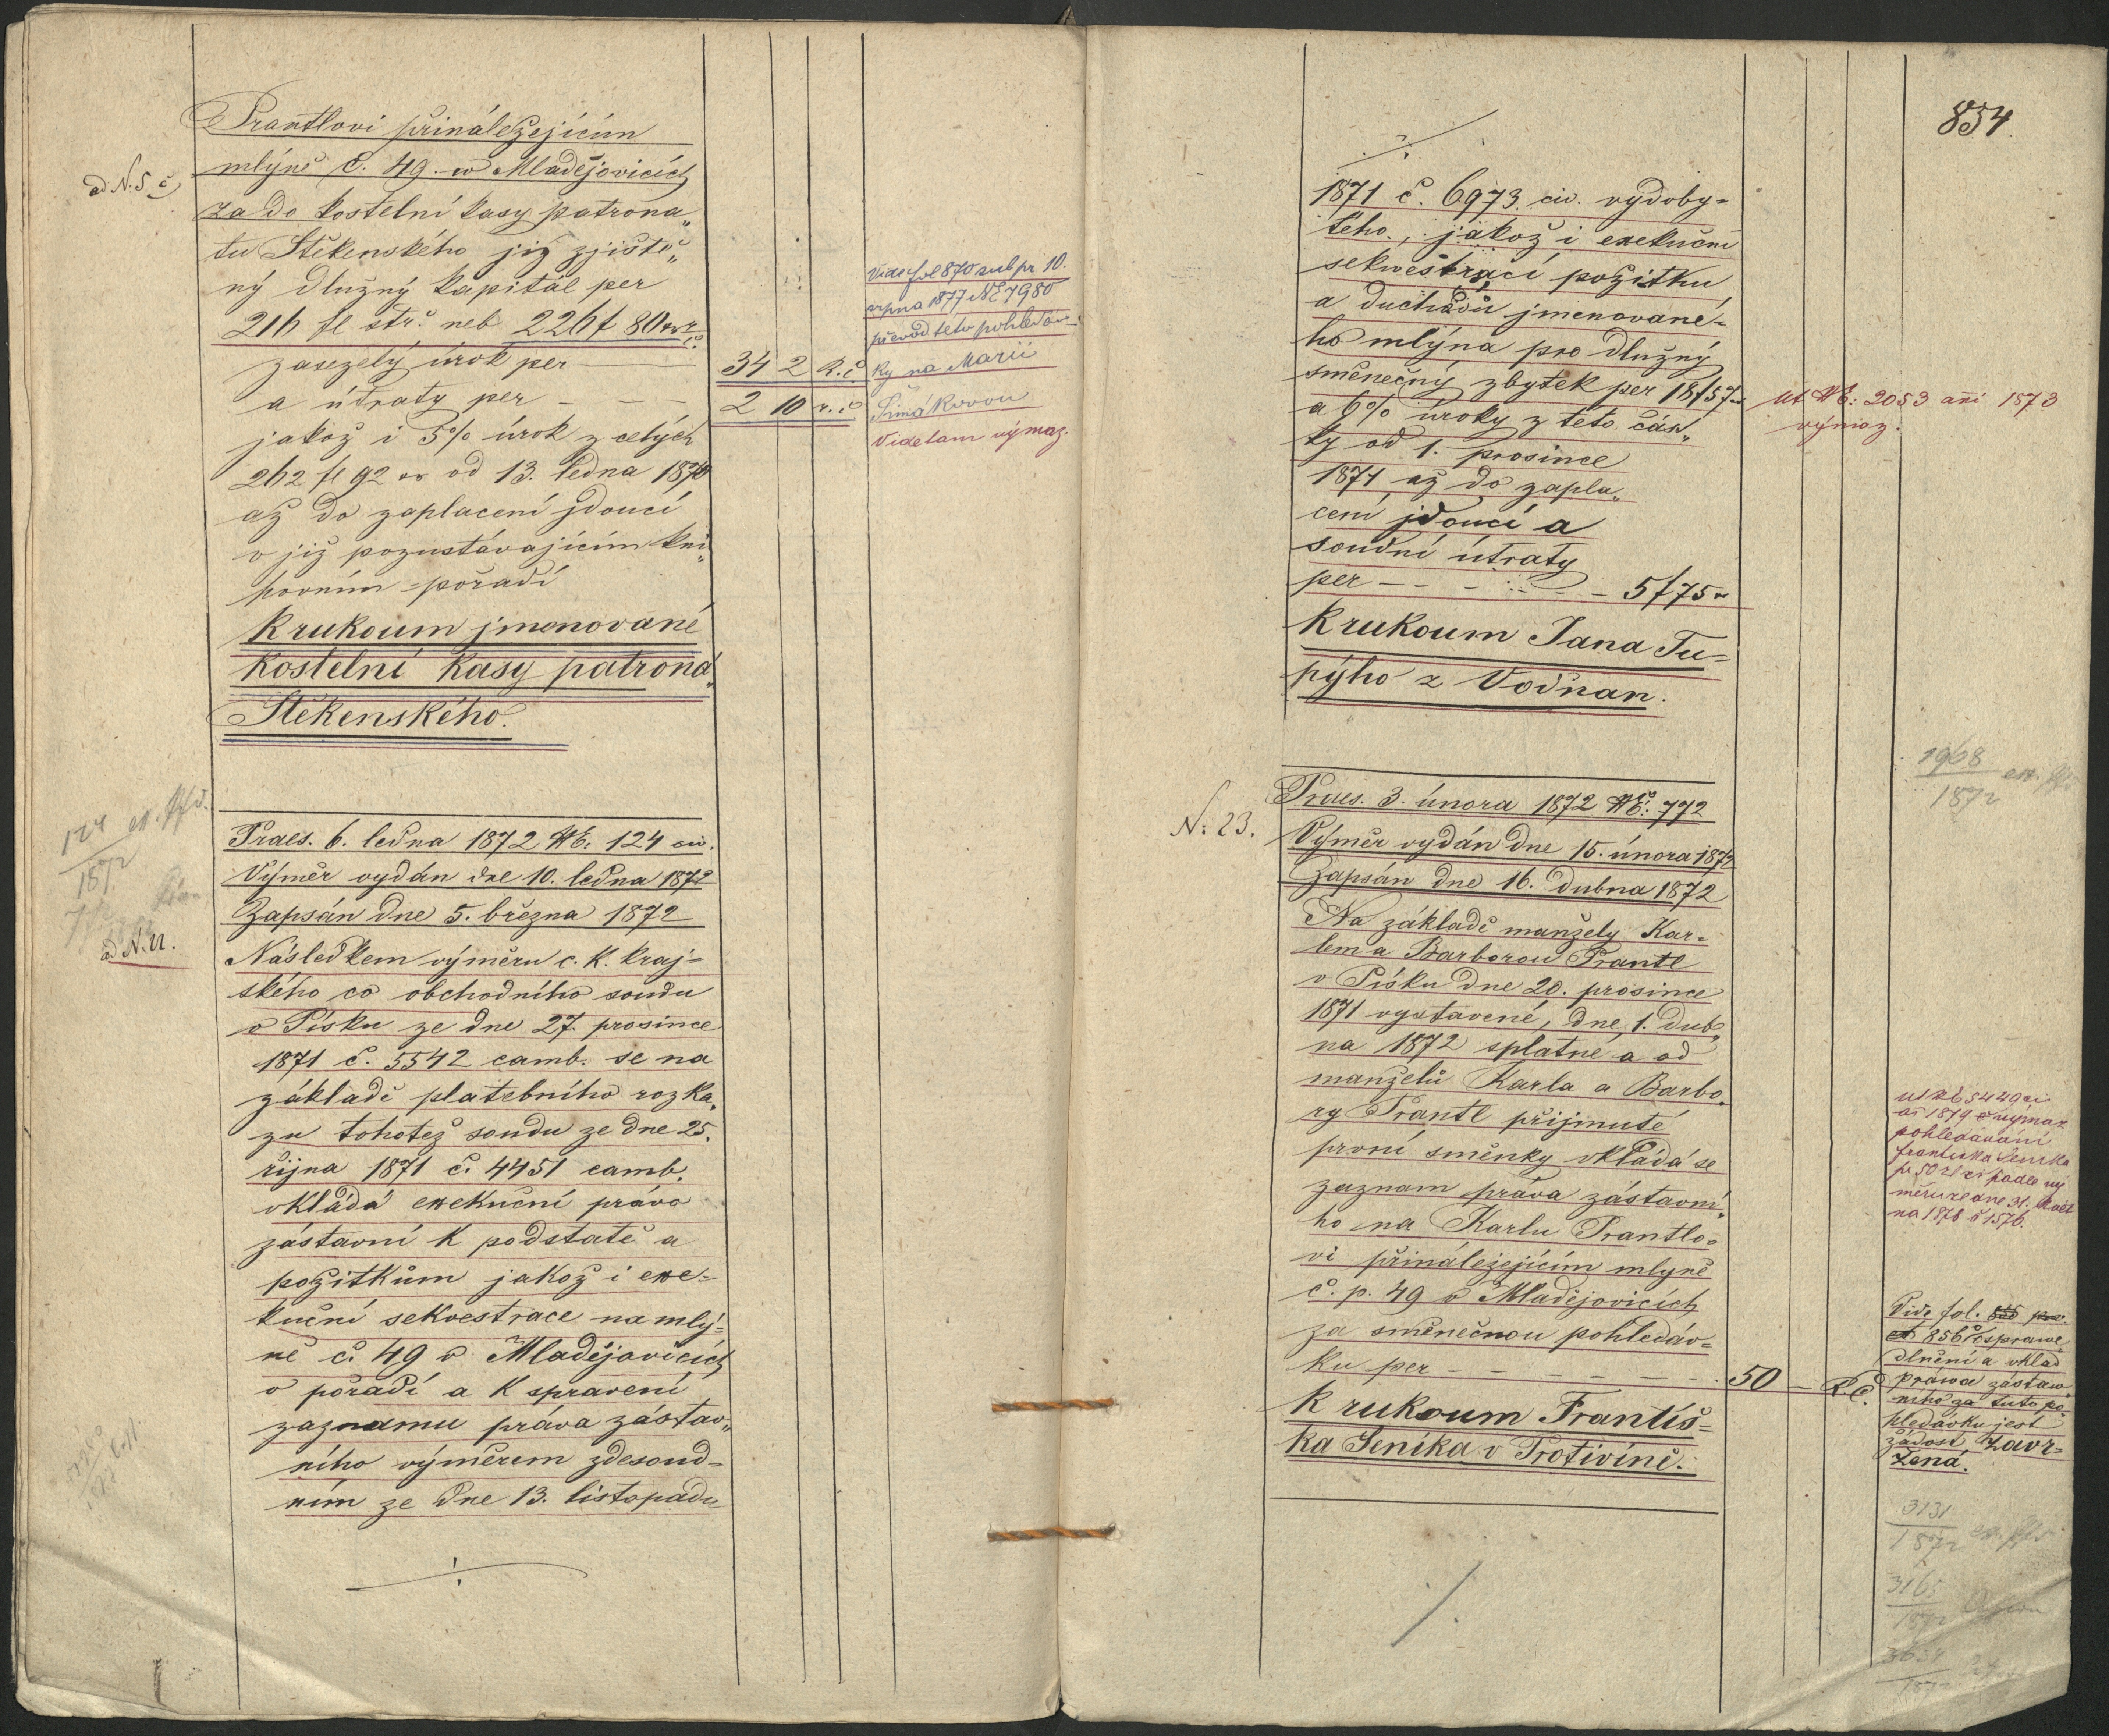 Prantlovi přináležejícím
ad N. 5 c)
mlýně č. 49. w Mladějovicích
za do kostelní kasy patrona„
tu Štěkenského již zjiště„
ný dlužný kapitál per
216 fl stř. neb 226 f 80 xr r. č.
zasezelý úrok per — 34 2 R. č.
a útraty per — — — 2 10 r. č.
jakož i 5% úrok z celých
262 fl 92 xr od 13. ledna 1870
až do zaplacení jdoucí
v již pozustávajícím kni„
hovním pořadí
K rukoum jmenované
kostelní kasy patroná„
Štěkenského.
Vide fol 870 sub pr 10.
srpna 1877 NE 7980
převod této pohledáv-
ky na Marii
Šimákovou
Vide tam výmaz.
124
1872
Praes. 6. ledna 1872 NE: 124 civ.
Výměr vydán dne 10. ledna 1872
Zapsán dne 5. března 1872
ad N. 22.
Následkem výměru c. k. kraj-
ského co obchodního soudu
v Písku ze dne 27. prosince
1871 č. 5542 camb. se na
základě platebního rozka„
zu tohotéž soudu ze dne 25.
října 1871 č. 4451 camb.
vkládá exekuční právo
zástavní k podstatě a
požitkům jakož i exe-
kuční sekvestrace na mlý-
ně č. 49 v Mladějovicích
v pořadí a k spravení
zaznamu práva zástav„
ního výměrem zdesoud-
ním ze dne 13. listopadu
854.
1871 č. 6973. civ. vydoby-
tého, jakož i exekuční
sekwestrací požitku
a duchodů jmenované-
ho mlýna pro dlužný
směnečný zbytek per 18 f 57 xr
a 6% úroky z této část„
ky od 1. prosince
1871 až do zapla„
cení jdoucí a
soudní útraty
per — — — — — 5 f 75 xr
K rukoum Jana Tu-
pýho z Vodňan.
ut NE: 2053 ani 1873
výmaz.
1968
1872
N: 23.
Praes. 3. února 1872 NE: 772
Výměr vydán dne 15. února 1872
Zapsán dne 16. dubna 1872
Na základě manžely Kar-
lem a Barborou Prantl
v Písku dne 20. prosince
1871 vystavené, dne 1. dub„
na 1872 splatné a od
manželů Karla a Barbo„
ry Prantl přijmuté
první směnky vkládá se
zaznam práva zástavní„
ho na Karlu Prantlo-
vi přináležejícím mlyně
č. p. 49 v Mladějovicích
za směnečnou pohledáv-
ku per — — — — — — 50 — R. č.
K rukoum Františ-
ka Seníka v Protivíně.
ut NE 5429 civ
ai 1879 výmaz
pohledávání
Františka Seníka
pr 50 zl podle vý
měru ze dne 31. květ
na 1878 č 1576.
Vide fol.
856 osprave„
dlnění a vklad
práwa zástaw„
ního za tuto po„
hledávku jest
žádost zavr-
žená.
3131
1872
3165
1872
3634
1872